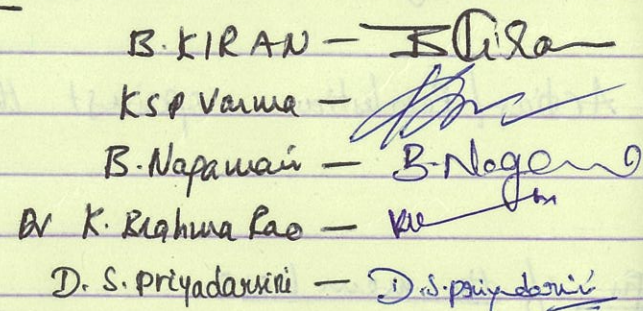 B. KIRAN —
KSP Varma —
B. Nagamani — B. Nagam
Dr K. Brahma Rao —
D. S. Priyadarsini — D. S. Priyadarsini